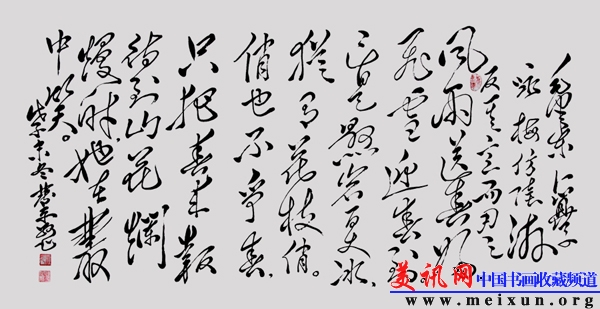 毛澤东卜算子
咏梅仿陸游
反其意而用之
风雨送春归
飞雪迎春到
已是悬岩百丈冰
犹有花枝俏
俏也不争春
只把春来報
待到山花爛
熳时她在叢
中笑
戊子末冬
美讯网 中国书画收藏频道
www.meixun.org